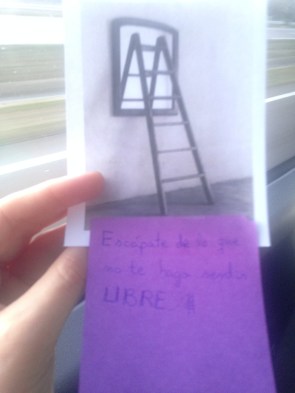 Escápate de lo que
no te haga sentir
LIBRE